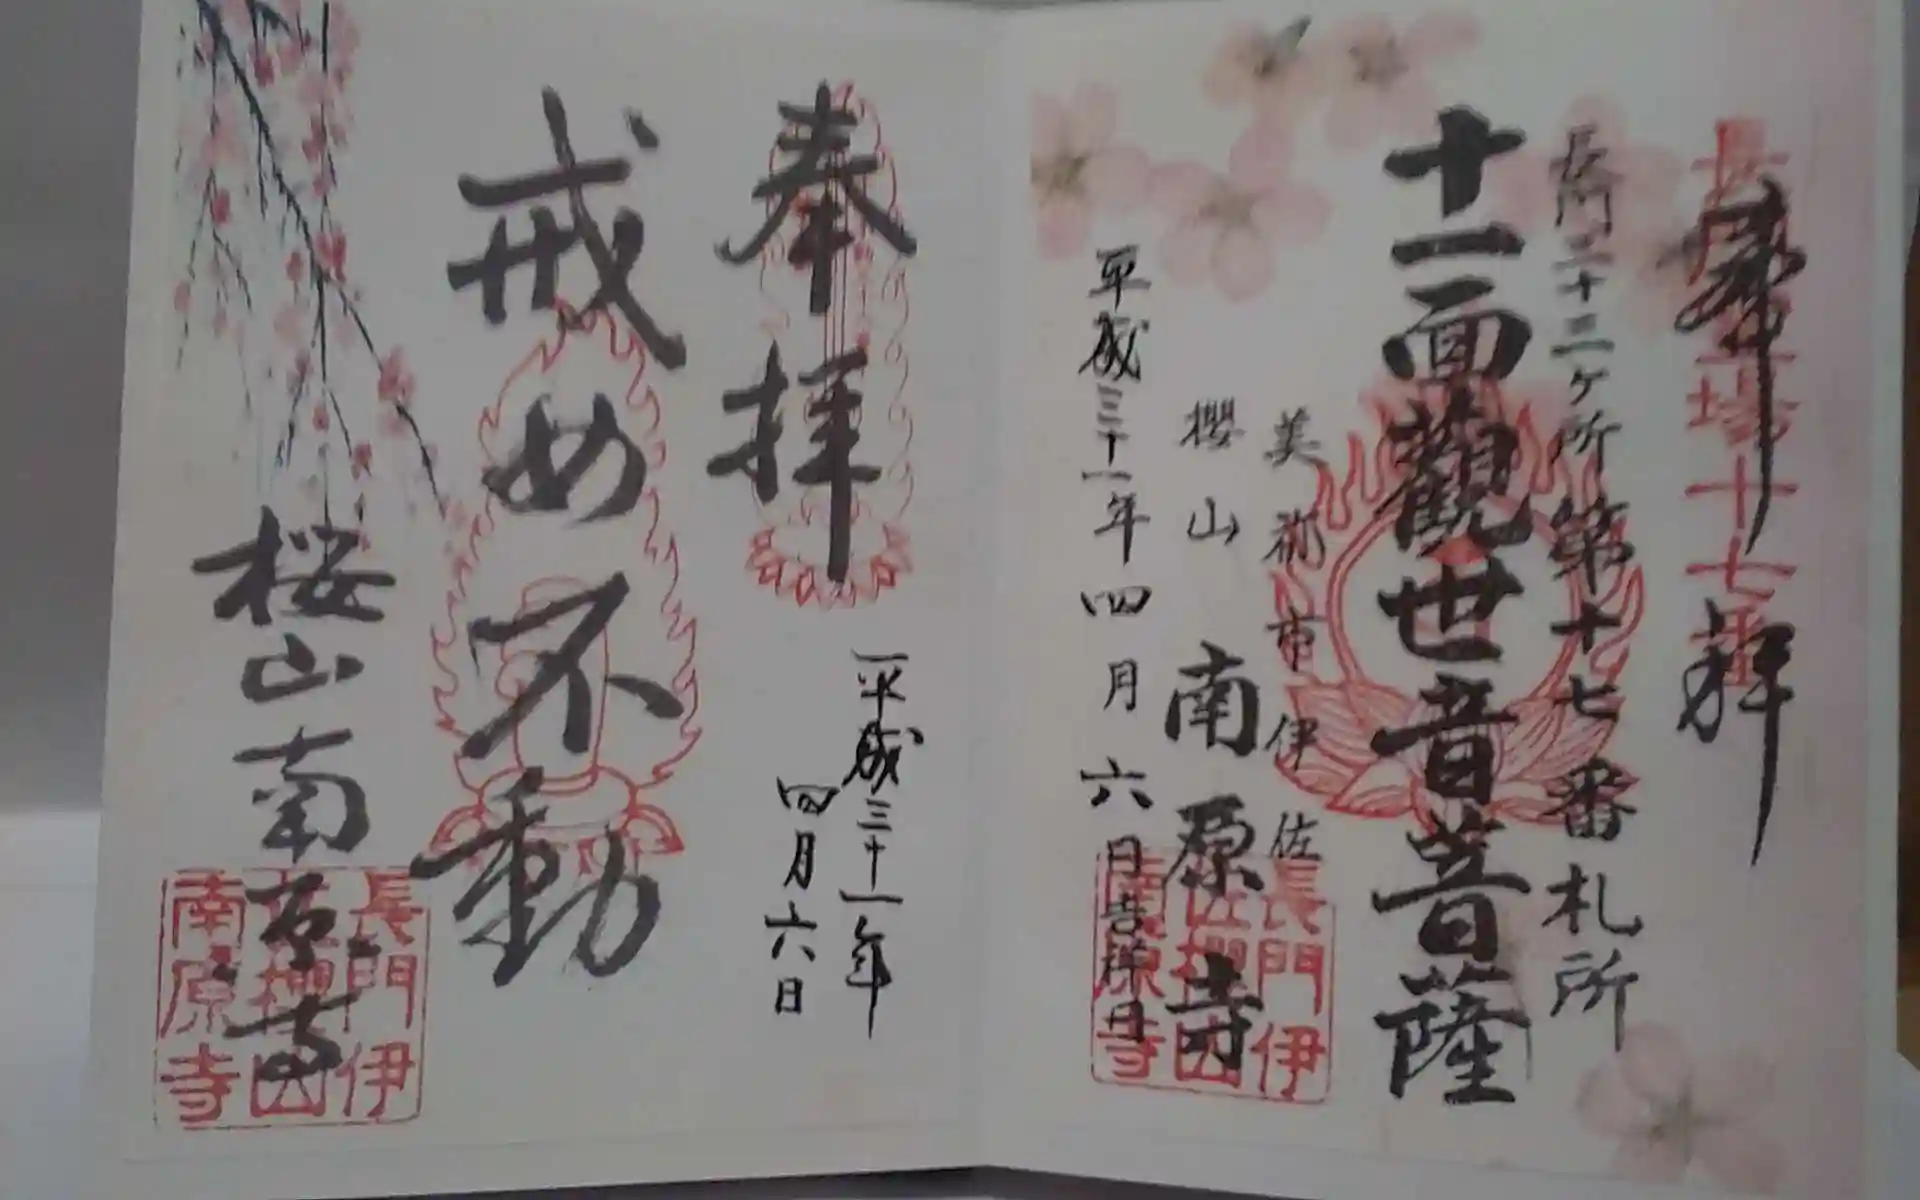 奉拝
長門三十三ケ所第十七番札所
十一面觀世音菩薩
美祢市伊佐
櫻山
南原寺
平成三十一年四月六日吉祥日
長門伊
佐櫻山
南原寺
奉拝
平成三十一年
四月六日
戒め不動
桜山南原寺
長門伊
佐櫻山
南原寺